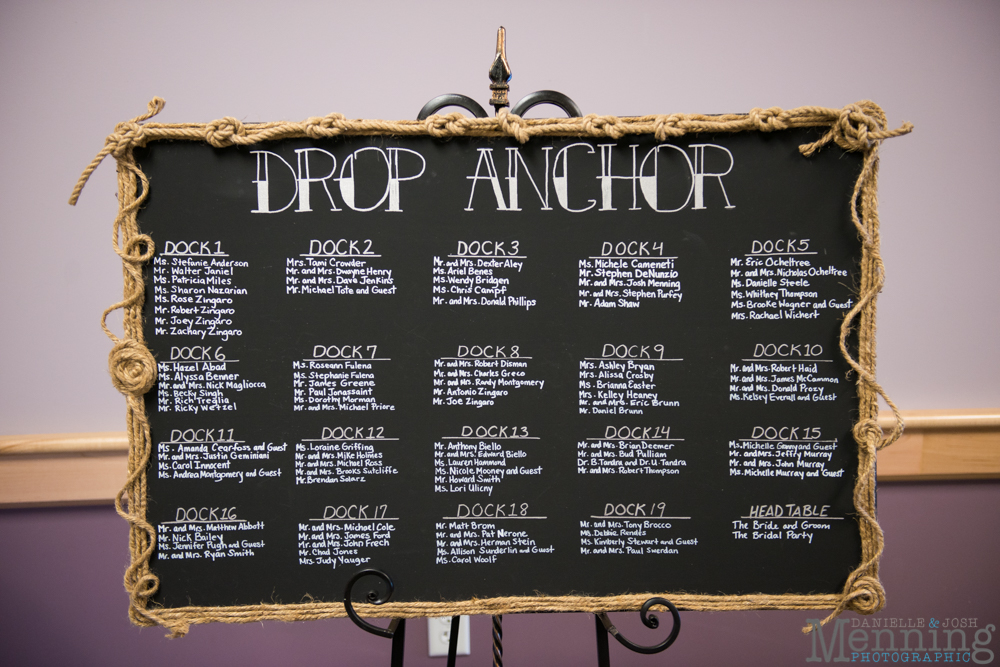 DROP ANCHOR
DOCK 1
Ms. Stefanie Anderson
Mr. Walter Janiel
Ms. Patricia Miles
Ms. Sharon Nazarian
Ms. Rose Zingaro
Mr. Robert Zingaro
Mr. Joey Zingaro
Mr. Zachary Zingaro
DOCK 2
Mrs. Tami Crowder
Mr. and Mrs. Dwayne Henry
Mr. and Mrs. Dave Jenkins
Mr. Michael Tate and Guest
DOCK 3
Mr. and Mrs. Dexter Aley
Ms. Ariel Benes
Ms. Wendy Bridgen
Ms. Chris Campf
Mr. and Mrs. Donald Phillips
DOCK 4
Ms. Michele Cameneti
Mr. Stephen DeNunzio
Mr. and Mrs. Josh Menning
Mr. and Mrs. Stephen Purfey
Mr. Adam Shaw
DOCK 5
Mr. Eric Ocheltree
Mr. and Mrs. Nicholas Ocheltree
Ms. Danielle Steele
Ms. Whitney Thompson
Ms. Brooke Wagner and Guest
Mrs. Rachael Wichert
DOCK 6
Ms. Hazel Abad
Ms. Alyssa Benner
Mr. and Mrs. Nick Magliocca
Ms. Becky Singh
Mr. Rich Treglia
Mr. Ricky Wetzel
DOCK 7
Ms. Roseann Fulena
Ms. Stephanie Fulena
Mr. James Greene
Mr. Paul Janassaint
Ms. Dorothy Morman
Mr. and Mrs. Michael Priore
DOCK 8
Mr. and Mrs. Robert Disman
Mr. and Mrs. Charles Greco
Mr. and Mrs. Randy Montgomery
Mr. Antonio Zingaro
Mr. Joe Zingaro
DOCK 9
Mrs. Ashley Bryan
Mrs. Alissa Crosby
Ms. Brianna Easter
Mrs. Kelley Heaney
Mr. and Mrs. Eric Brunn
Mr. Daniel Brunn
DOCK 10
Mr. and Mrs. Robert Haid
Mr. and Mrs. James McCammon
Mr. and Mrs. Donald Proxy
Ms. Kelsey Everall and Guest
DOCK 11
Ms. Amanda Cearfoss and Guest
Mr. and Mrs. Justin Geminiani
Ms. Carol Innocent
Ms. Andrea Montgomery and Guest
DOCK 12
Ms. Loraine Griffing
Mr. and Mrs. Mike Holmes
Mr. and Mrs. Michael Ross
Mr. and Mrs. Brooks Sutcliffe
Mr. Brendan Solarz
DOCK 13
Mr. Anthony Biello
Mr. and Mrs. Edward Biello
Ms. Lauren Hammond
Ms. Nicole Mooney and Guest
Mr. Howard Smith
Ms. Lori Ulicny
DOCK 14
Mr. and Mrs. Brian Deemer
Mr. and Mrs. Bud Pulliam
Dr. B. Tandra and Dr. U. Tandra
Mr. and Mrs. Robert Thompson
DOCK 15
Ms. Michelle and Guest
Mr. and Mrs. Jeffry Murray
Mr. and Mrs. John Murray
Ms. Michelle Murray and Guest
DOCK 16
Mr. and Mrs. Matthew Abbott
Mr. Nick Bailey
Ms. Jennifer Pugh and Guest
Mr. and Mrs. Ryan Smith
DOCK 17
Mr. and Mrs. Michael Cole
Mr. and Mrs. James Ford
Mr. and Mrs. John Frech
Mr. Chad Jones
Mrs. Judy Yauger
DOCK 18
Mr. Matt Brom
Mr. and Mrs. Pat Nerone
Mr. and Mrs. Herman Stein
Ms. Allison Sunderlin and Guest
Ms. Carol Woolf
DOCK 19
Mr. and Mrs. Tony Brocco
Ms. Debbie Rendés
Ms. Kimberly Stewart and Guest
Mr. and Mrs. Paul Swerdan
HEAD TABLE
The Bride and Groom
The Bridal Party
DANIELLE & JOSH
Menning
PHOTOGRAPHIC